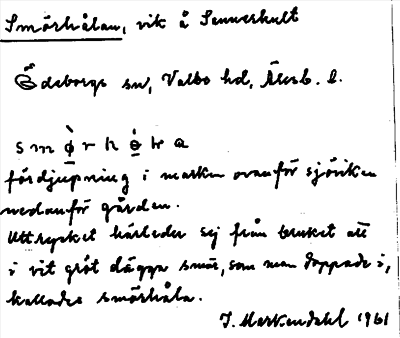 Smörhålan, vik å Sannerhult
Ödeborgs sn, Valbo hd, Älvsb. l.
s m ø̀ r h ɵ̀ l a
fördjupning i marken ovanför sjöviken
nedanför gården.
Uttrycket härleder sej från bruket att
i vit gröt lägga smör, som man doppade i,
kallades smörhåla.
J. Markendahl 1961